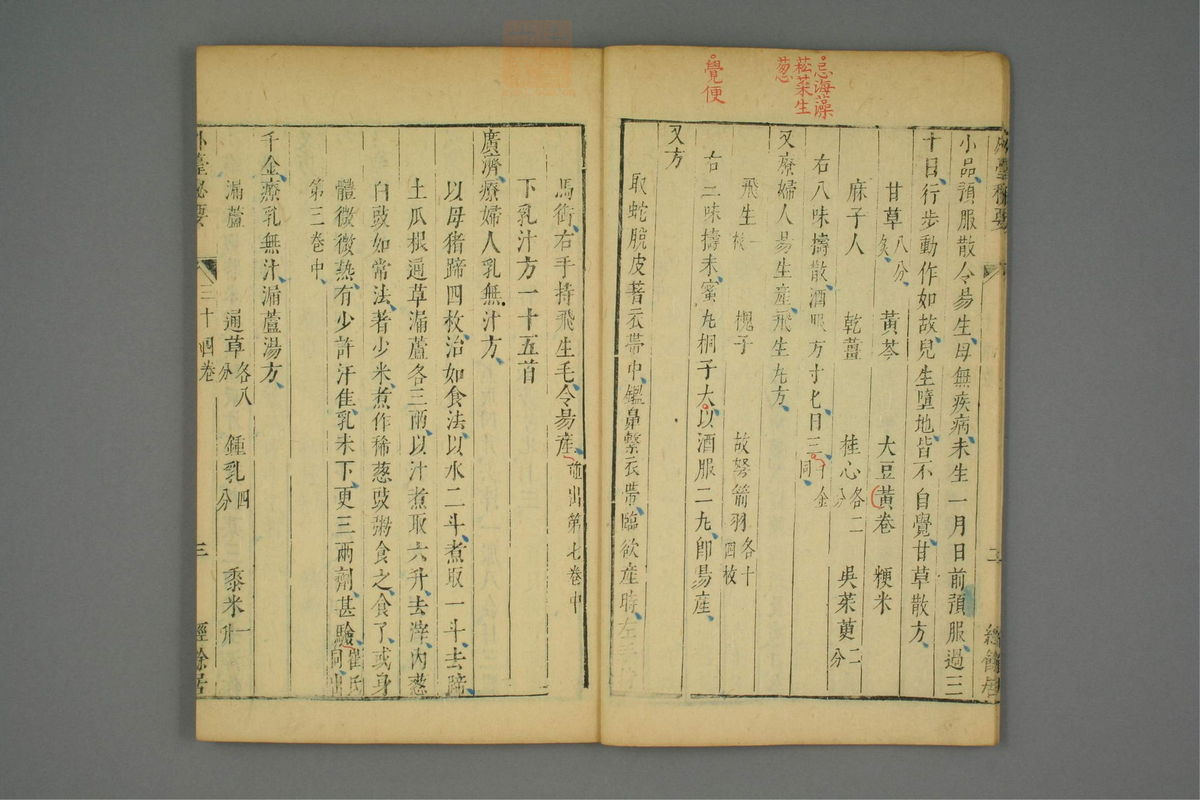 忌海藻
菘菜生
葱
覺便
外臺秘要
經餘居
小品預服散令易生母無疾病未生一月日前預服過三
十日行步動作如故兒生墮地皆不自覺甘草散方
甘草八分炙 黃芩 大豆黃卷 粳米
麻子人 乾薑 桂心各二分 吳茱萸二分
右八味擣散酒服方寸匕日三千金同
又療婦人易生產飛生丸方
飛生一枚 槐子 故弩箭羽各十四枚
右二味擣末蜜丸桐子大以酒服二丸即易產
又方
取蛇脫皮著衣帶中鑑鼻繫衣帶臨欲產時左手
馬銜右手持飛生毛令易產並出第七卷中
下乳汁方一十五首
廣濟療婦人乳無汁方
以母猪蹄四枚治如食法以水二斗煮取一斗去蹄
土瓜根通草漏蘆各三兩以汁煮取六升去滓內葱
白豉如常法著少米煮作稀葱豉粥食之食了或身
體微微熱有少許汗佳乳未下更三兩劑甚驗崔氏同出
第三卷中
千金療乳無汁漏蘆湯方
漏蘆 通草各八分 鍾乳四分 黍米一升
外臺秘要 三十四卷 三 經餘居